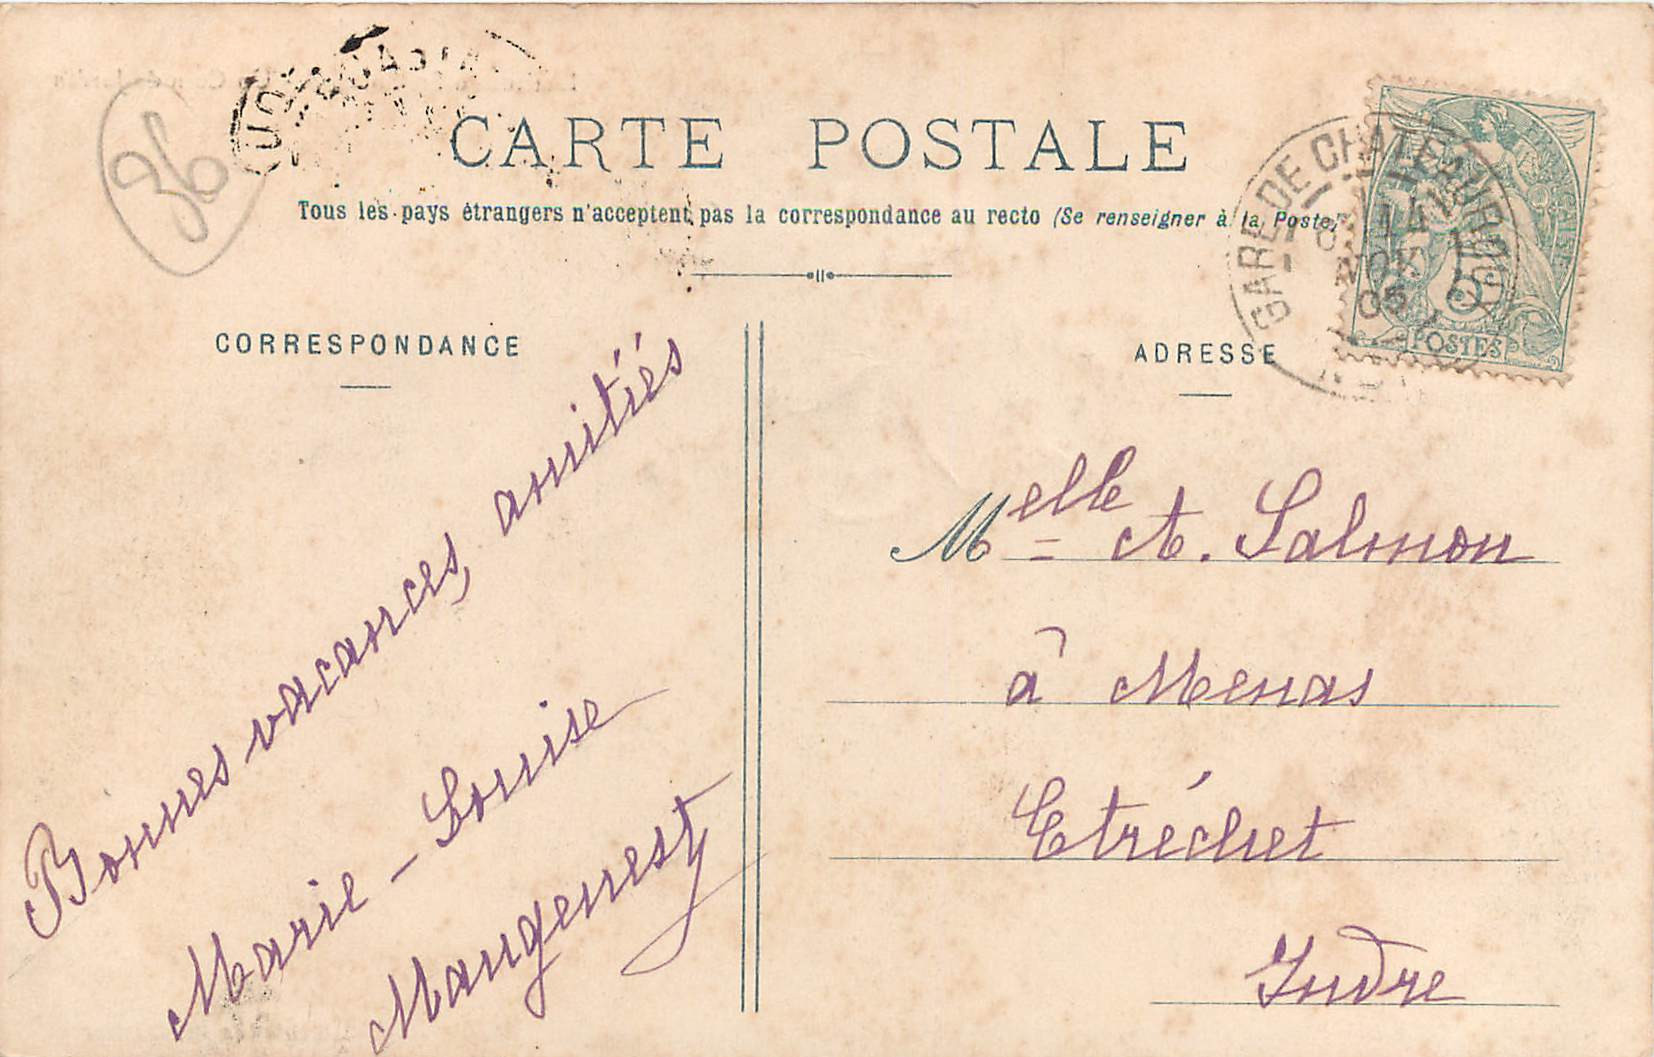 36
CARTE POSTALE
Tous les pays étrangers n'acceptent pas la correspondance au recto (Se renseigner à la Poste)
CORRESPONDANCE
ADRESSE
GARE DE CHATEAUROUX
05
FRANÇAISE
5
POSTES
Bonnes vacances, amitiés
Marie-Louise
Maugenest
Melle A. Salmon
à Menas
Etréchet
Indre